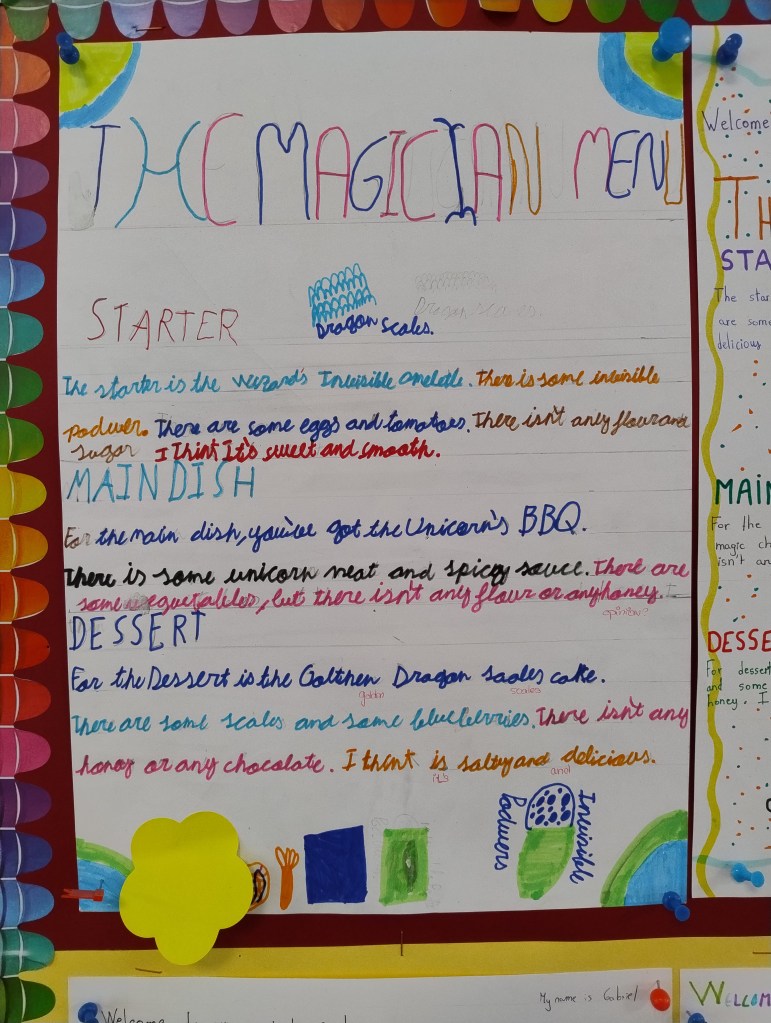 THE MAGICIAN MENU
Dragon scales.
Dragon scales.
STARTER
The starter is the Wizard's Inveisible omelatle. There is some inveisible
poduver. There are some eggs and tomatoes. There isn't any flour and
sugar I think It's sweet and smooth.
MAIN DISH
For the main dish, you've got the Unicorn's BBQ.
There is some unicorn meat and spicey sauce. There are
some veguetables, but there isn't any flour or any honey. I
opinion?
DESSERT
For the Dessert is the Golthen Dragon saales cake.
golden scales
There are some scales and some blueberries. There isn't any
honoy or any chocolate. I thint is salty and delicious.
it's and
Inveisible
Poduvers
Welcome
TH
STA
The star
are some
delicious
MAIN
For the
magic ch
isn't an
DESSE
For dessert
and some
honey. I
My name is Gabriel
WELCOM